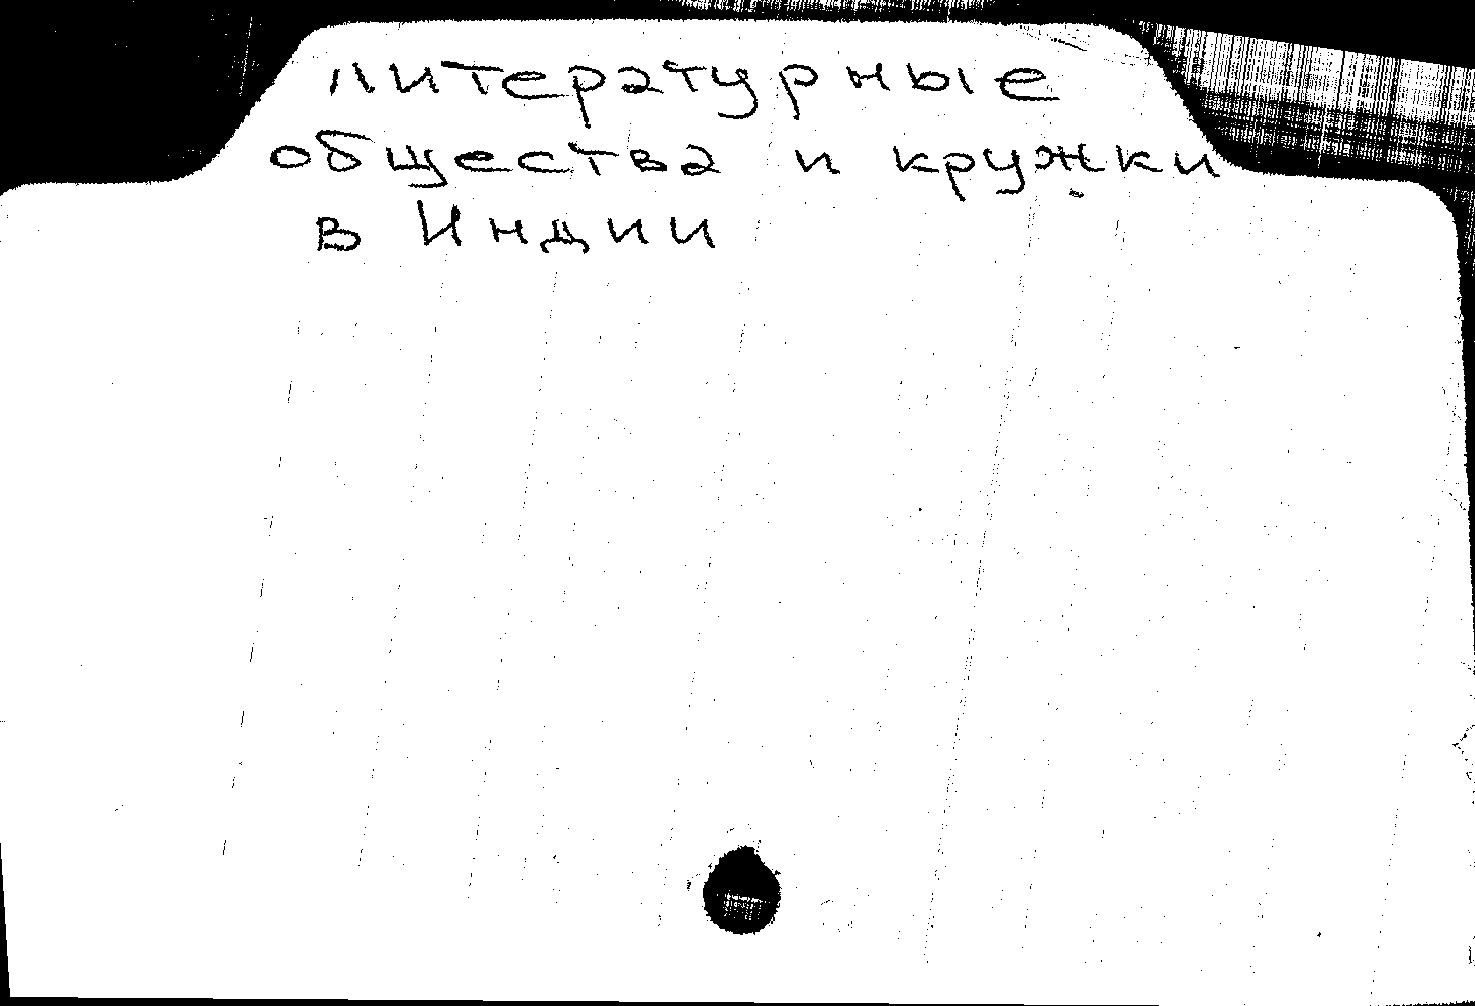 литературные
общества и кружки
в Индии